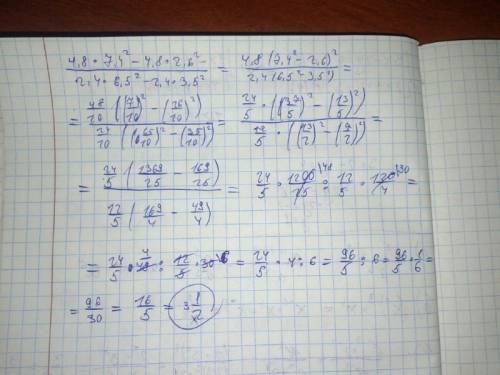 (4,8 * 7,4² - 4,8 * 2,6²) / (2,4 * 6,5² - 2,4 * 3,5²) = 4,8 (7,4² - 2,6)² / 2,4 (6,5² - 3,5²) =
= 48/10 ((74/10)² - (26/10)²) / 24/10 ((65/10)² - (35/10)²) = 24/5 * ((37/5)² - (13/5)²) / 12/5 * ((13/2)² - (7/2)²) =
= 24/5 (1369/25 - 169/25) / 12/5 (169/4 - 49/4) = 24/5 * 1200/25 48 : 12/5 * 120/4 30 =
= 24/5 * 4/48 : 12/5 * 30 6 = 24/5 * 4 : 6 = 96/5 : 6 = 96/5 * 1/6 =
= 96/30 = 16/5 = 3 1/2